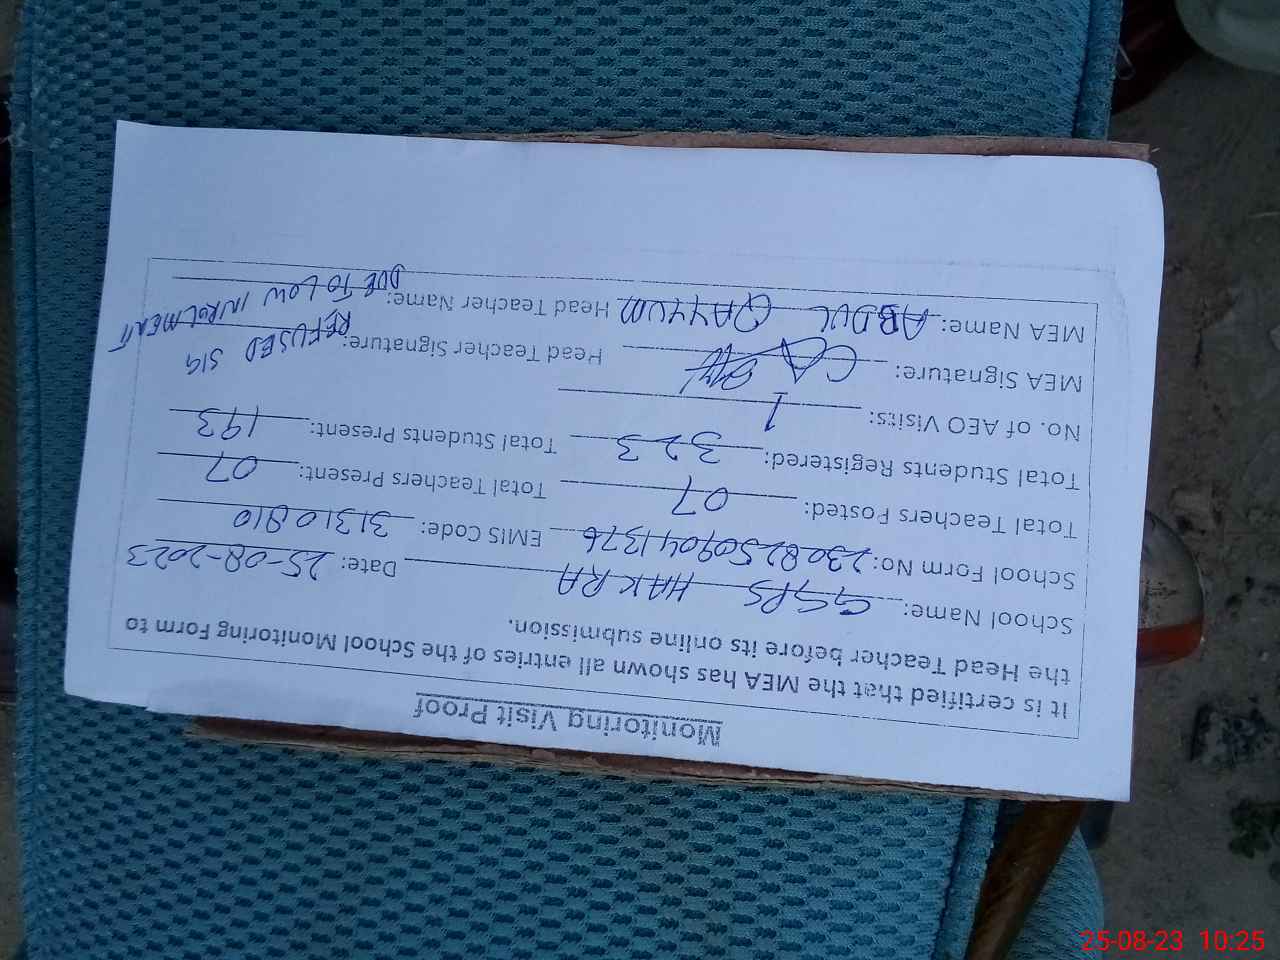 Monitoring Visit Proof
It is certified that the MEA has shown all entries of the School Monitoring Form to
the Head Teacher before its online submission.
School Name: GGPS HAKRA Date: 25-08-2023
School Form No: 230825090941376 EMIS Code: 31310810
Total Teachers Posted: 07 Total Teachers Present: 07
Total Students Registered: 323 Total Students Present: 193
No. of AEO Visits: 1
MEA Signature: Head Teacher Signature: REFUSED SIG
MEA Name: ABDUL QAYYUM Head Teacher Name: DUE TO LOW INROLMENT
25-08-23 10:25